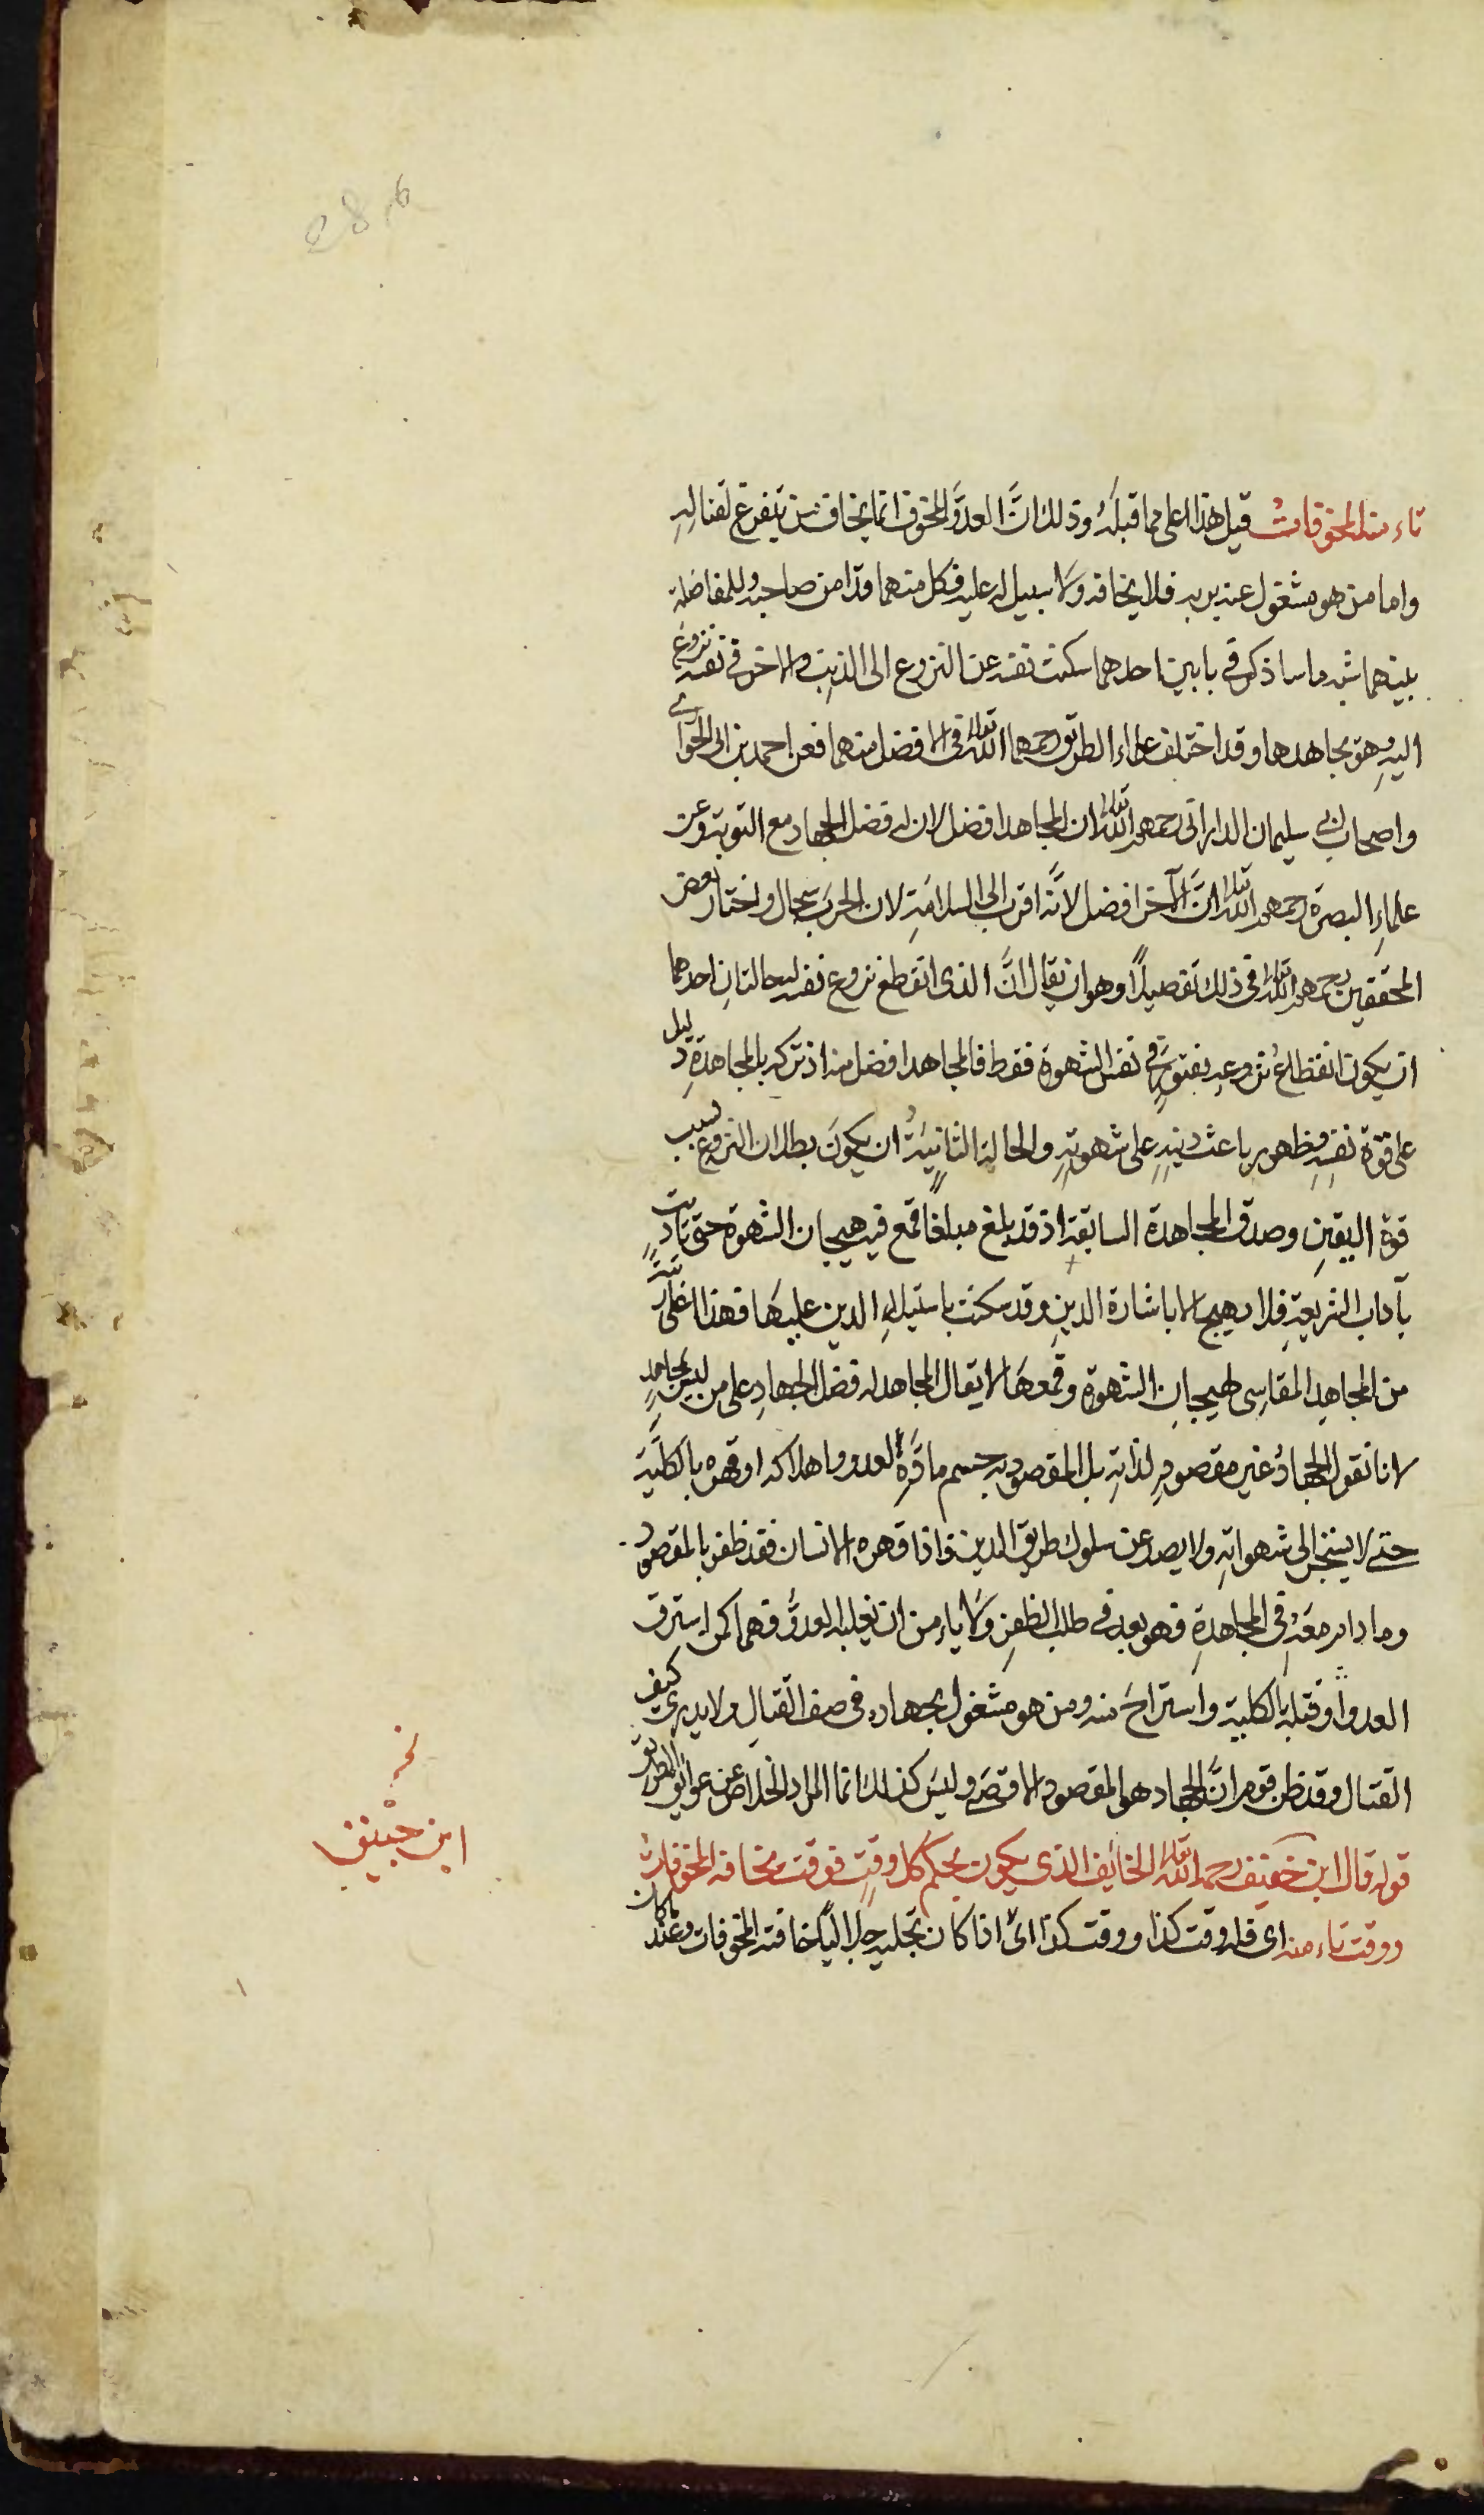 تاء منه المخوفات قيل هذا اعلى مما قبله وذلك انَّ العدوَّ المخوف انما يخاف من يتفرغ لقتالهِ
واما من هو مشغول عنه بربه فلا يخافه ولا سبيل له عليه فكل منهما قد امن صاحبه وللمفاضلة
بينهما شبه ما ساذكره في بابين احدهما سكنت نفسه عن النزوع الى الذنب والاخر في نفسه نزوع
اليهِ وهو يجاهدها وقد اختلف علماء الطريق رحمهم الله تعالى في الافضل منهما فعن احمد بن ابي الحواري
واصحاب ابي سليمان الداراني رحمهم الله تعالى ان المجاهد افضل لان له فضل الجهاد مع التوبة وعن
علماءِ البصرة رحمهم الله تعالى انَّ الآخر افضل لانَّه اقرب الى السلامَةِ لان الحرب سجال واختار بعض
المحققين رحمهم الله تعالى في ذلك تفصيلاً وهو ان يقال انَّ الذى انقطع نزوع نفسه له حالتانِ احدهما
ان يكون انقطاعُ نزوعهِ بفتورٍ في نفس الشهوة فقط فالمجاهد افضل منه اذ تركه بالمجاهدةِ دليل
على قوة نفسِهِ وظهور باعث دينهِ على شهوتهِ والحالة الثانيَةُ ان يكونَ بطلان النزوع بسبب
قوة اليقينِ وصدق المجاهدة السابقة اذ قد بلغ مبلغًا قمع فيه هيجان الشهوة حتى تادبت
بآداب الشريعةِ فلا تهيج الا باشارة الدينِ وقد سكنت باستيلاءِ الدين عليهَا فهذا اعلى رتبةً
من المجاهِدِ المقاسِى لهيجانِ الشهوة وقمعهَا لا يقال المجاهد له فضل الجهادِ على من ليس بمجاهدٍ
لانا نقول الجهادُ غير مقصودٍ لذاتهِ بل المقصود به حسم مادة العدو واهلاكه او قهره بالكليَّة
حتى لا ينجر الى شهواتهِ ولا يصد عن سلوك طريق الدين فاذا قهره الانسان فقد ظفر بالمقصود
وما دام معَهُ في المجاهدةِ فهو بعد في طلب الظفرِ ولا ياءمن ان يغلبه العدوُّ فهما كمن استرق
العدو او قتله بالكلية واستراحَ منه ومن هو مشغول بجهاده في صف القتالِ ولا يدرى كيف
القتال وقد ظن قوم انَّ الجهاد هو المقصود الاقصَى وليسَ كذلك انما المراد الخلاص عن عوائق الطريق
قوله قال ابن خفيف رحمه الله تعالى الخايف الذى يكون بحكم كل وقتٍ فوقت مخافه المخوفات
ووقت تاءمنه اى فله وقت كذا ووقت كذا اىْ اذا كان تجليه جلاليًا خافته المخوفات وعند ما كان
نخ
ابن خبيق